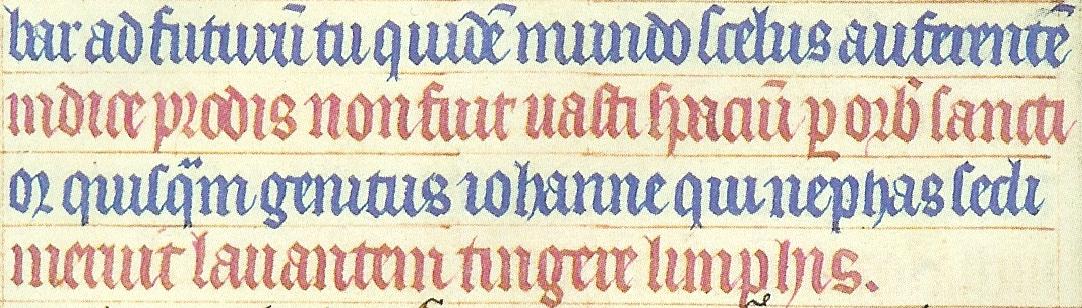 bar ad futurū tu quidē mundo scelus auferentē
indice prodis non fuit uasti spaciū ꝑ orbē sancti
or quisq̄m genitus iohanne qui nephas secli
meruit lauantem tingere limphis.